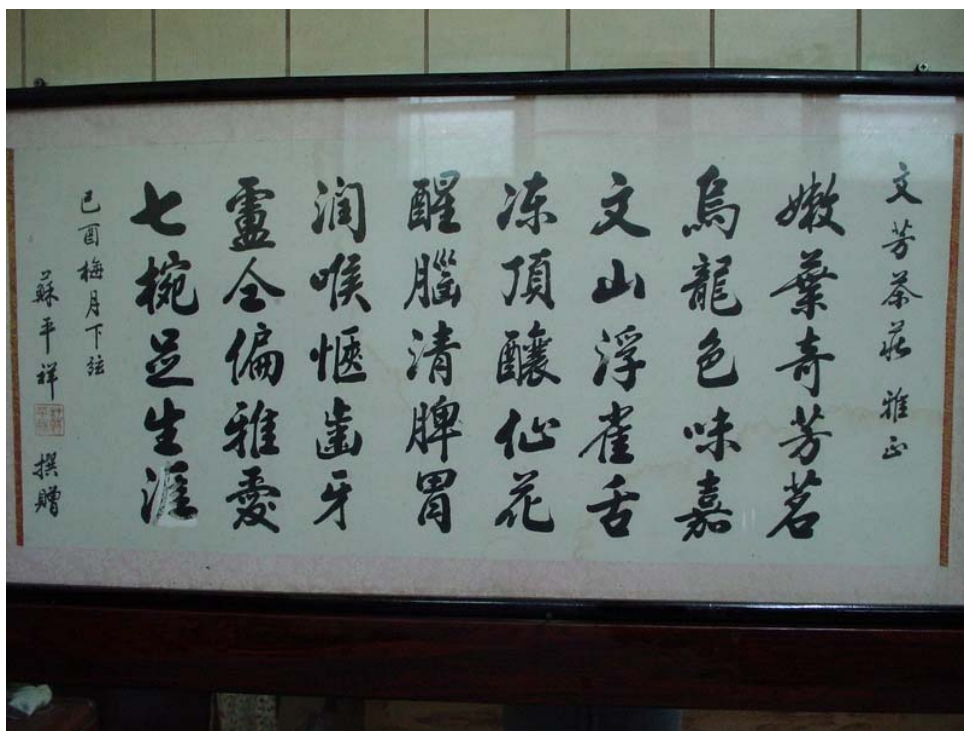 文芳茶莊 雅正
嫩葉奇芳茗
烏龍色味嘉
文山浮雀舌
凍頂釀仙花
醒腦清脾胃
润喉愜齒牙
盧仝偏雅愛
七椀足生涯
己酉梅月下弦
蘇平祥 撰贈